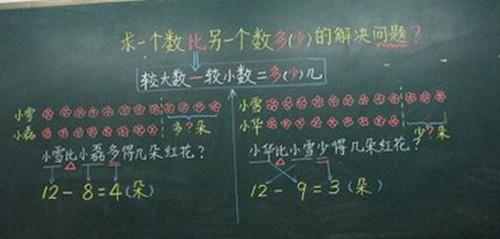 求一个数比另一个数多(少)的解决问题?
较大数一较小数=多(少)几
小雪
小磊 多?朵
小雪比小磊多得几朵红花?
12-8=4(朵)
小雪
小华 少?朵
小华比小雪少得几朵红花?
12-9=3(朵)